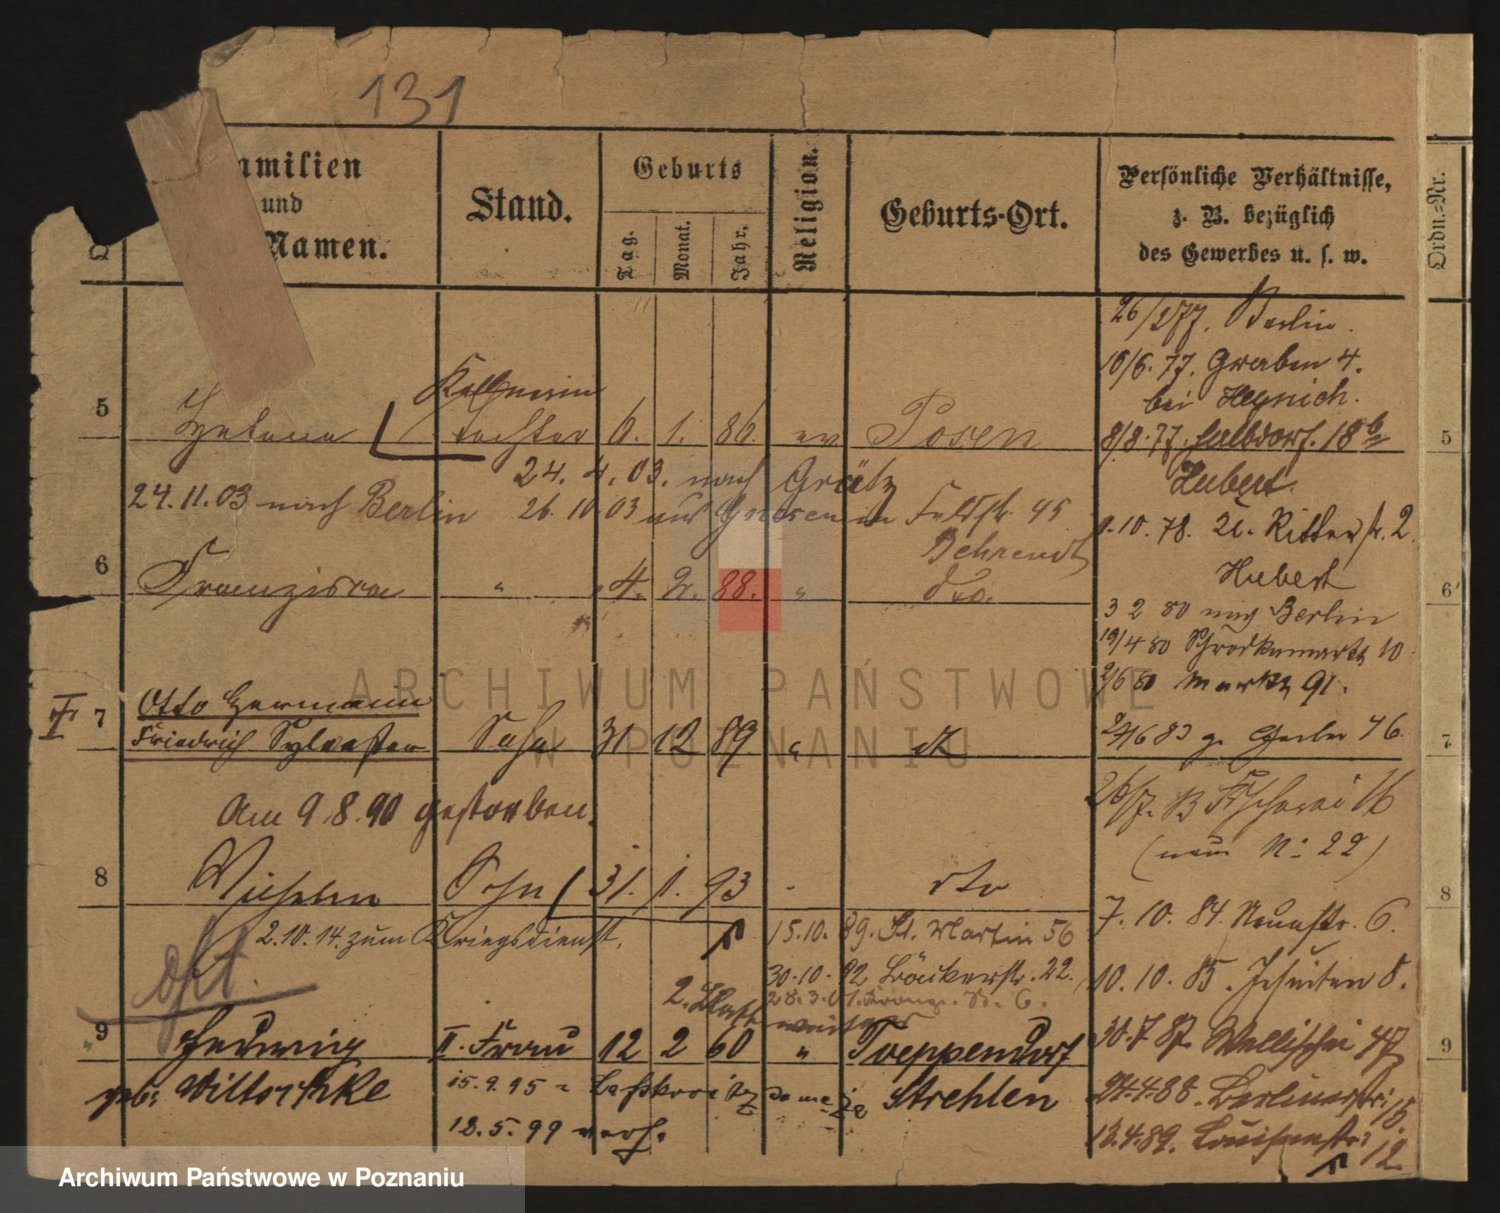 131
amilien
und
Namen.
Stand.
Geburts
Tag.
Monat.
Jahr.
Religion.
Geburts-Ort.
Persönliche Verhältnisse,
z. B. bezüglich
des Gewerbes u. s. w.
Ordn.-Nr.
26/2 77. Berlin.
18/6. 77. Graben 4.
bei Heynich.
Kellnerin
5 Helene tochter 6. 1. 86. ev Posen
8/8. 77. Halbdorf. 18b 5
24. 4. 03. nach Grätz
Hubert
24.11.03 nach Berlin 26.10.03 aus Gnesen in Feldstr. 45
Behrendt
1.10.78. Ritterstr. 2.
Hubert
6 Franziska " 4. 2. 88. " dto. 6
3 2 80 nach Berlin
19/4 80 Schrodkamarkt 10
2/6 80 Markt 91.
II 7 Otto Hermann
Friedrich Sylvester Sohn 31 12 89 " 7
24/6 83 Gerber 46.
Am 9.8.90 gestorben.
26/7. Fischerei 16
(neue N: 22)
8 Wilhelm Sohn 31. 1. 93 dto 8
7. 10. 84. Neuestr. 6.
2.10.14. zum Kriegsdienst.
15.10. 89. St. Martin 56
30.10. 92 Bäckerstr. 22.
10. 10. 85. Jesuiten 8.
2. Blatt
9 Hedwig II. Frau 12 2 60 " Toeppendorf 9
30.7 87. Wallischei
geb: 15.9.95 Strehlen
24.4.88. Berlinerstr: 15.
12.5.99
12.4.89. Louisenstr: 12.
ARCHIWUM PAŃSTWOWE
W POZNANIU
Archiwum Państwowe w Poznaniu